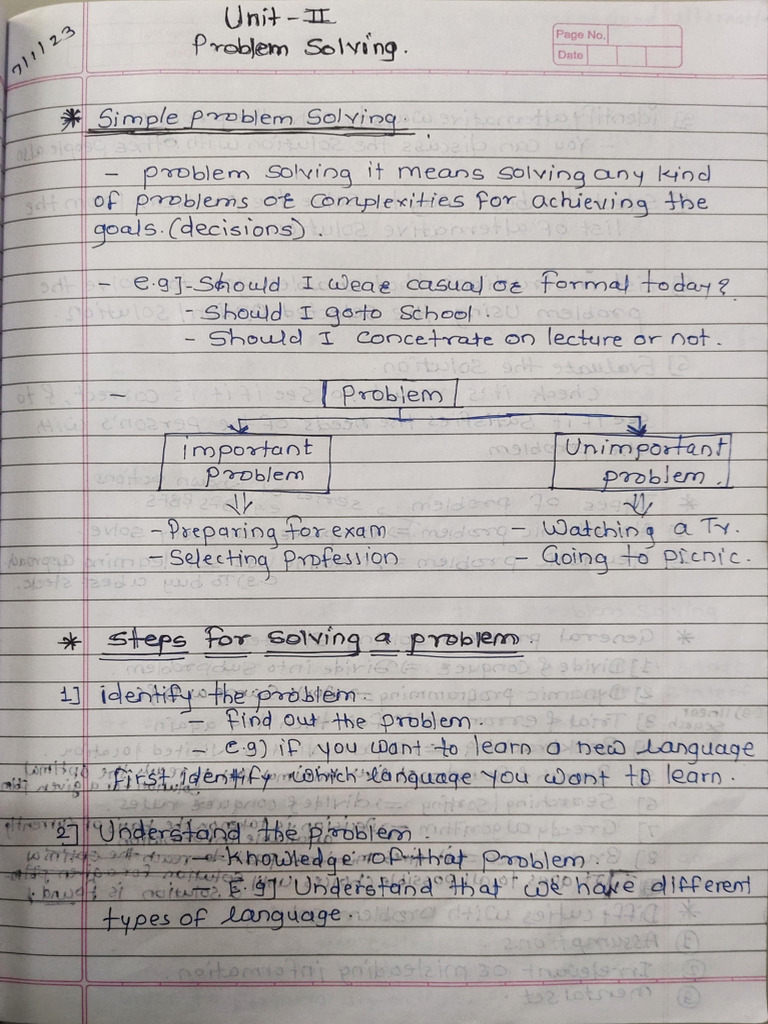 7/1/23
Unit - II
Problem Solving.
Page No.
Date
* Simple problem Solving.
- problem solving it means solving any kind
of problems or complexities for achieving the
goals. (decisions).
- e.g] - Should I wear casual or formal today?
- Should I go to School.
- Should I concetrate on lecture or not.
- Problem
important Unimportant
problem problem.
- Preparing for exam - Watching a Tv.
- Selecting Profession - Going to picnic.
* Steps for solving a problem.
1] identify the problem.
- find out the problem.
- e.g) if you want to learn a new language
first identify which language you want to learn.
2] Understand the problem.
- knowledge of that problem.
- E.g] Understand that we have different
types of language.